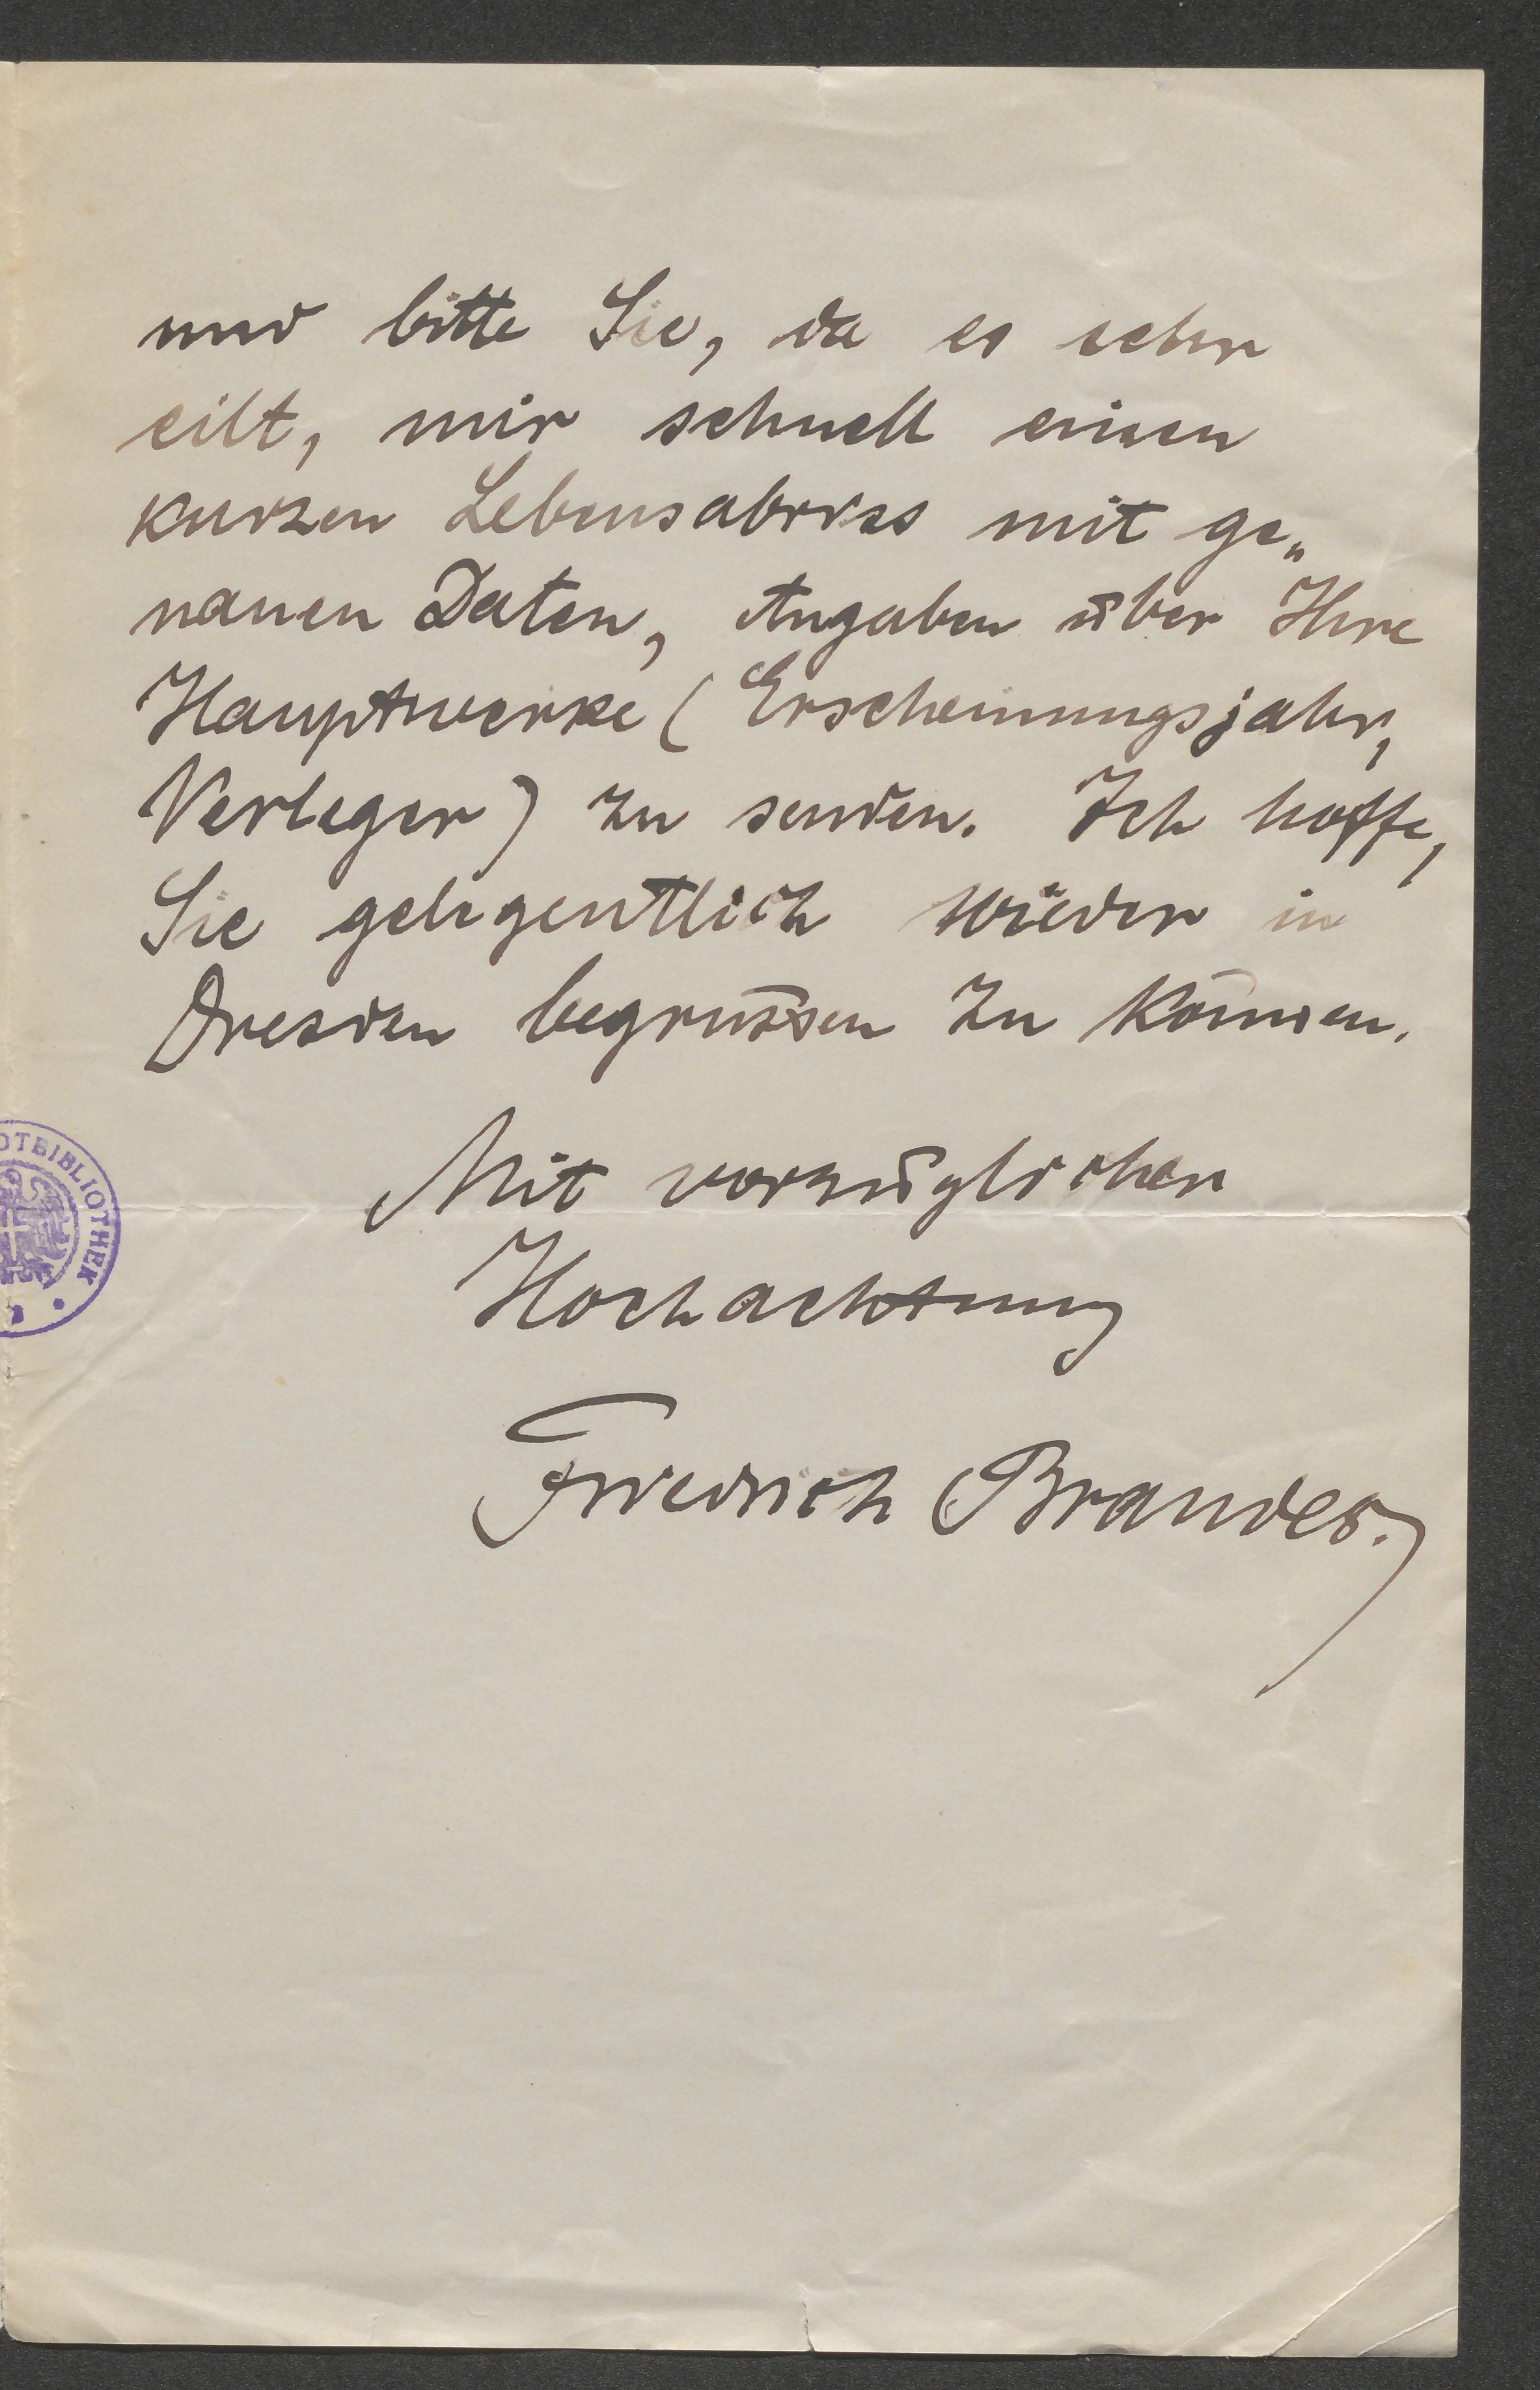 und bitte Sie, da es sehr
eilt, mir schnell einen
kurzen Lebensabriss mit ge„
nauen Daten, Angaben über Ihre
Hauptwerke (Erscheinungsjahr,
Verleger) zu senden. Ich hoffe,
Sie gelegentlich wieder in
Dresden begrüssen zu können.
DTBIBLIOTHEK
Mit vorzüglicher
Hochachtung
Friedrich Brandes.